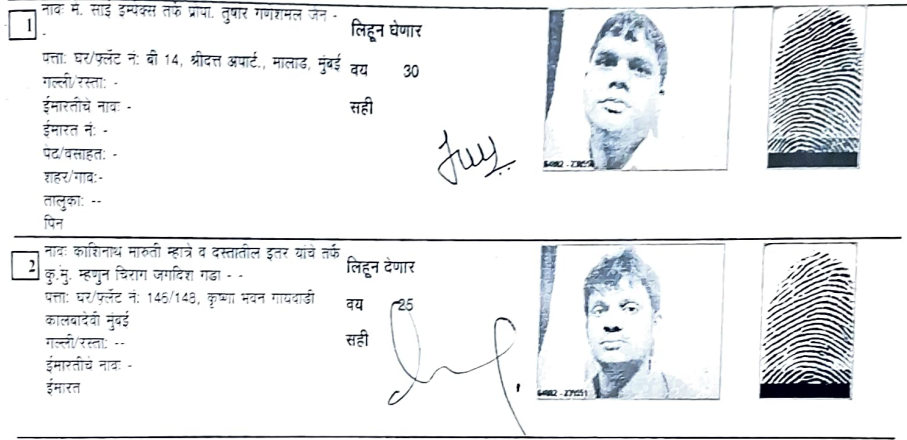 1
नावः मे. साई इम्पेक्स तर्फे प्रोपा. तुषार गणेशमल जैन -
-
पत्ताः घर/फ्लॅट नं: बी 14, श्रीदत्त अपार्ट., मालाड, मुंबई
गल्ली/रस्ता: -
ईमारतीचे नावः -
ईमारत नं: -
पेठ/वसाहत: -
शहर/गाव:-
तालुका: --
पिन
लिहून घेणार
वय 30
सही
2
नावः काशिनाथ मारुती म्हात्रे व दस्तातील इतर यांचे तर्फे
कु.मु. म्हणुन चिराग जगदिश गडा - -
पत्ताः घर/फ्लॅट नं: 146/148, कृष्णा भवन गायवाडी
काळबादेवी मुंबई
गल्ली/रस्ता: --
ईमारतीचे नावः -
ईमारत
लिहून देणार
वय 25
सही